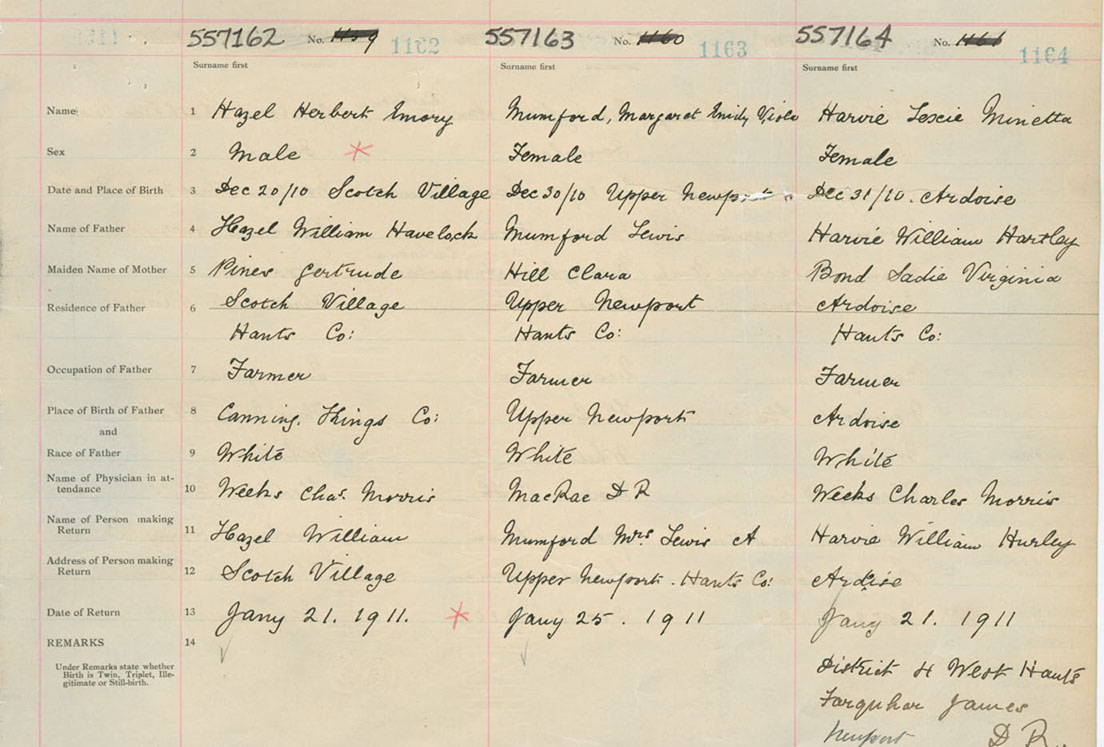 557162 No. 1159 1162 557163 No. 1160 1163 557164 No. 1161 1164
Surname first Surname first Surname first
Name 1 Hazel Herbert Emory Mumford, Margaret Emily Viola Harvie Lexie Minetta
Sex 2 Male * Female Female
Date and Place of Birth 3 Dec 20/10 Scotch Village Dec 30/10 Upper Newport Dec 31/10. Ardoise
Name of Father 4 Hazel William Havelock Mumford Lewis Harvie William Hartley
Maiden Name of Mother 5 Pineo Gertrude Hill Clara Bond Sadie Virginia
Residence of Father 6 Scotch Village Upper Newport Ardoise
Hants Co: Hants Co: Hants Co:
Occupation of Father 7 Farmer Farmer Farmer
Place of Birth of Father 8 Canning. Kings Co: Upper Newport Ardoise
and
Race of Father 9 White White White
Name of Physician in at-
tendance 10 Weeks Chas. Morris MacRae D R Weeks Charles Morris
Name of Person making
Return 11 Hazel William Mumford Mrs. Lewis A Harvie William Hurley
Address of Person making
Return 12 Scotch Village Upper Newport. Hants Co: Ardoise
Date of Return 13 Jany 21. 1911. * Jany 25. 1911 Jany 21. 1911
REMARKS 14
Under Remarks state whether
Birth is Twin, Triplet, Ille-
gitimate or Still-birth.
District 4 West Hants
Farquhar James
Newport D R.